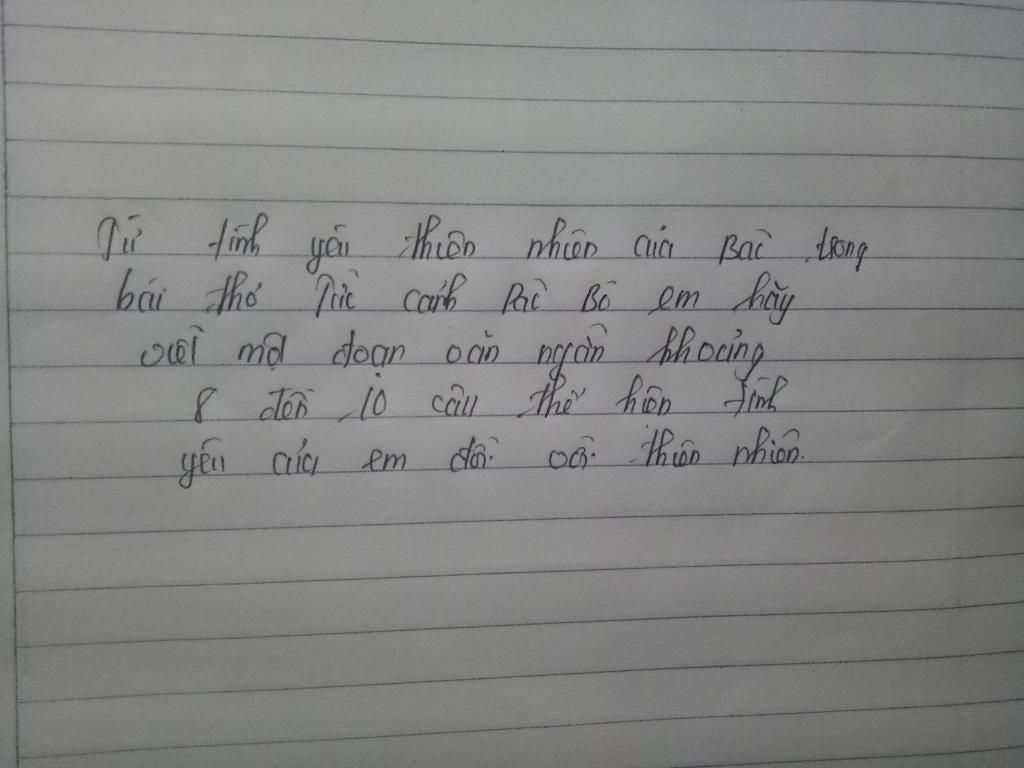 Từ tình yêu thiên nhiên của Bác trong
bài thơ Tức cảnh Pác Bó em hãy
viết một đoạn văn ngắn khoảng
8 đến 10 câu thể hiện tình
yêu của em đối với thiên nhiên.